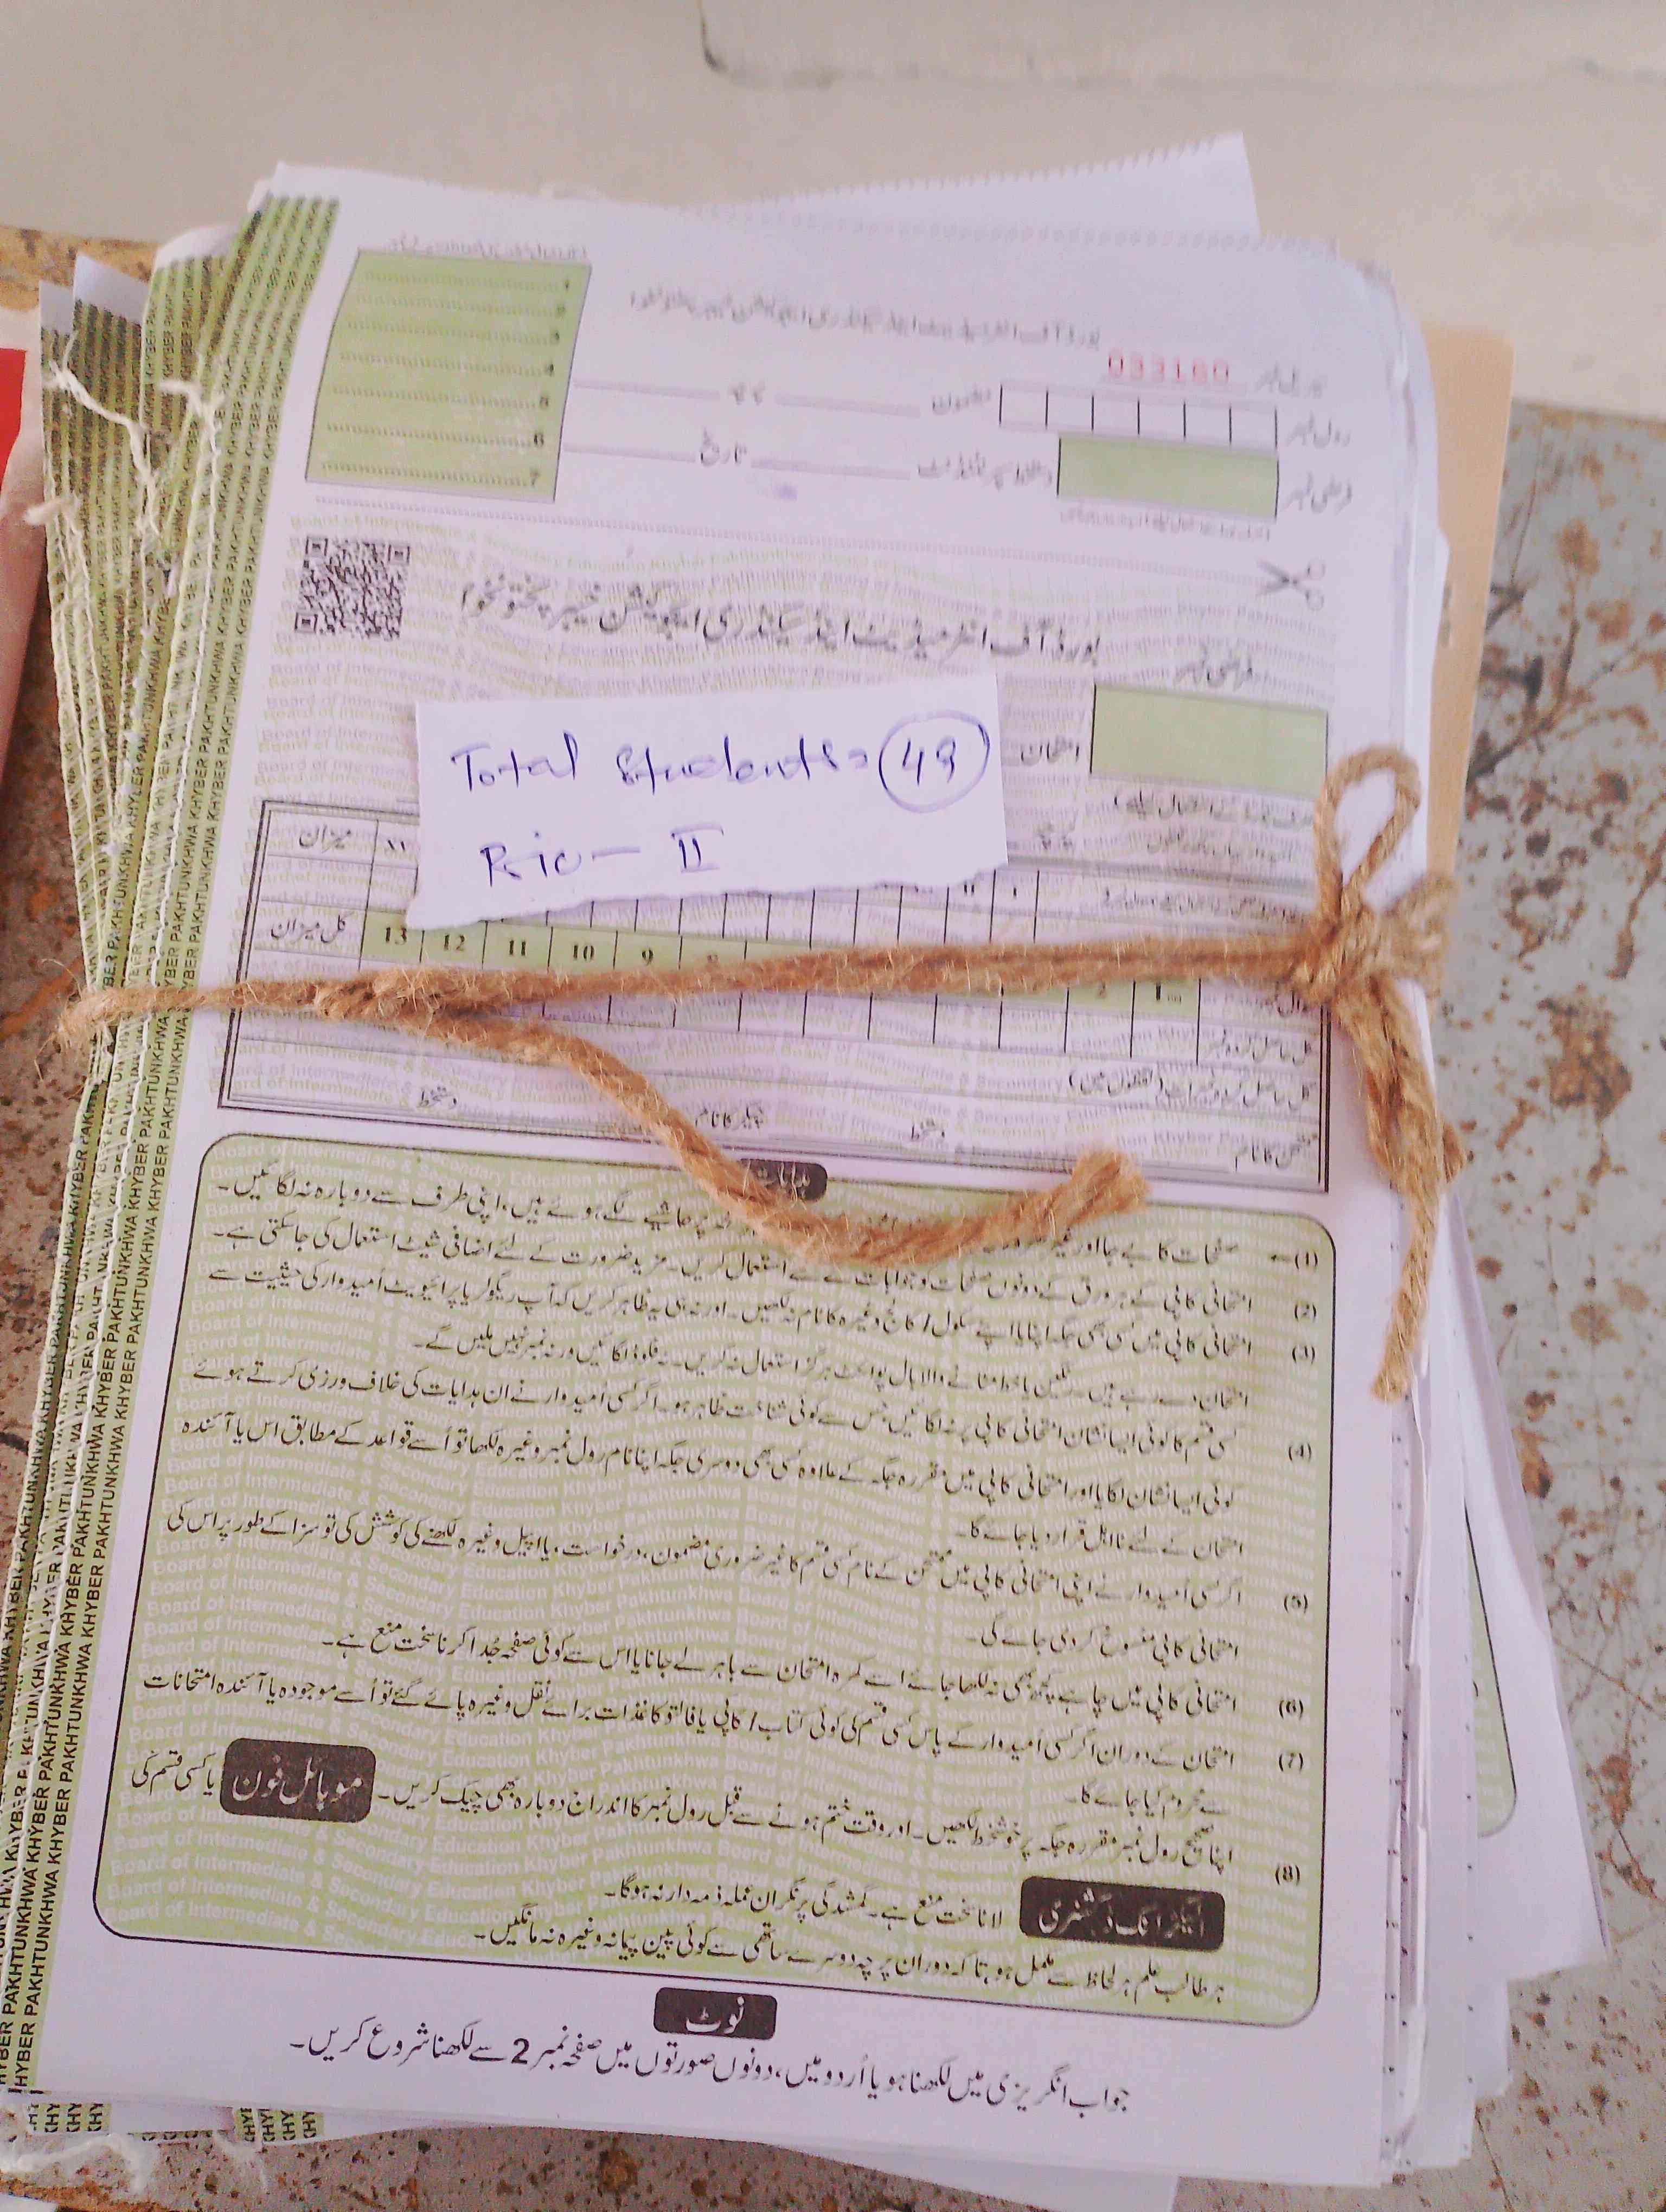 بورڈ آف انٹرمیڈیٹ اینڈ سیکنڈری ایجوکیشن خیبر پختونخوا
سیریل نمبر 033160
رول نمبر
مضمون
پرچہ
فرضی نمبر
دستخط سپرنٹنڈنٹ
تاریخ
1
2
3
4
5
6
7
بورڈ آف انٹرمیڈیٹ اینڈ سیکنڈری ایجوکیشن خیبر پختونخوا
فرضی نمبر
امتحان
Total Students = 49
Bio - II
میزان
کل میزان
13 12 11 10 9 8
2 1
کل حاصل کردہ نمبر
کل حاصل کردہ نمبرات (لفظوں میں)
ممتحن کا نام
دستخط
چیکر کا نام
دستخط
ہدایات
(1) صفحات کا بے جا اور غیر ضروری
پر حاشیے لگے ہوئے ہیں، اپنی طرف سے دوبارہ نہ لگائیں۔
(2) امتحانی کاپی کے ہر ورق کے دونوں صفحات کو جوابات کے لئے استعمال کریں۔ مزید ضرورت کے لئے اضافی شیٹ استعمال کی جاسکتی ہے۔
(3) امتحانی کاپی میں کسی بھی جگہ اپنا یا اپنے سکول / کالج وغیرہ کا نام نہ لکھیں۔ اور نہ ہی یہ ظاہر کریں کہ آپ ریگولر یا پرائیویٹ اُمیدوار کی حیثیت سے
امتحان دے رہے ہیں۔ رنگین یا خط مٹانے والا بال پوائنٹ ہرگز استعمال نہ کریں۔ نہ فلوڈ لگائیں ورنہ نمبر نہیں ملیں گے۔
(4) کسی قسم کا کوئی ایسا نشان امتحانی کاپی پر نہ لگائیں، جس سے کوئی شناخت ظاہر ہو۔ اگر کسی اُمیدوار نے ان ہدایات کی خلاف ورزی کرتے ہوئے
کوئی ایسا نشان لگایا اور امتحانی کاپی میں مقررہ جگہ کے علاوہ کسی بھی دوسری جگہ اپنا نام رول نمبر وغیرہ لکھا تو اُسے قواعد کے مطابق اس یا آئندہ
امتحان کے لئے نااہل قرار دیا جائے گا۔
(5) اگر کسی اُمیدوار نے اپنی امتحانی کاپی میں ممتحن کے نام کسی قسم کا غیر ضروری مضمون، درخواست، یا اپیل وغیرہ لکھنے کی کوشش کی تو سزا کے طور پر اس کی
امتحانی کاپی منسوخ کر دی جائے گی۔
(6) امتحانی کاپی میں چاہے کچھ بھی نہ لکھا جائے اسے کمرہ امتحان سے باہر لے جانا یا اس سے کوئی صفحہ جُدا کرنا سخت منع ہے۔
(7) امتحان کے دوران اگر کسی اُمیدوار کے پاس کسی قسم کی کوئی کتاب / کاپی یا فالتو کاغذات برائے نقل وغیرہ پائے گئے تو اُسے موجودہ یا آئندہ امتحانات
سے محروم کیا جائے گا۔
(8) اپنا صحیح رول نمبر مقررہ جگہ پر خوشخط لکھیں۔ اور وقت ختم ہونے سے قبل رول نمبر کا اندراج دوبارہ بھی چیک کریں۔ موبائل فون یا کسی قسم کی
الیکٹرانک ڈکشنری لانا سخت منع ہے۔ گمشدگی پر نگران عملہ ذمہ دار نہ ہوگا۔
ہر طالب علم ہر لحاظ سے مکمل ہو، تاکہ دوران پرچہ دوسرے ساتھی سے کوئی پین پیمانہ وغیرہ نہ مانگیں۔
نوٹ
جواب انگریزی میں لکھنا ہو یا اُردو میں، دونوں صورتوں میں صفحہ نمبر 2 سے لکھنا شروع کریں۔